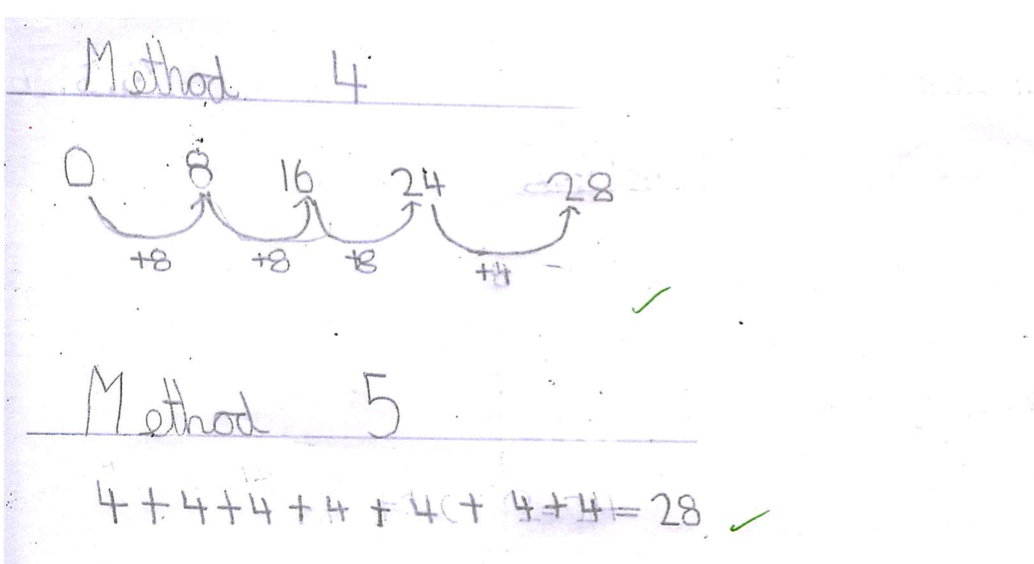 Method 4
0 8 16 24 28
+8 +8 +8 +4
Method 5
4 + 4 + 4 + 4 + 4 + 4 + 4 = 28